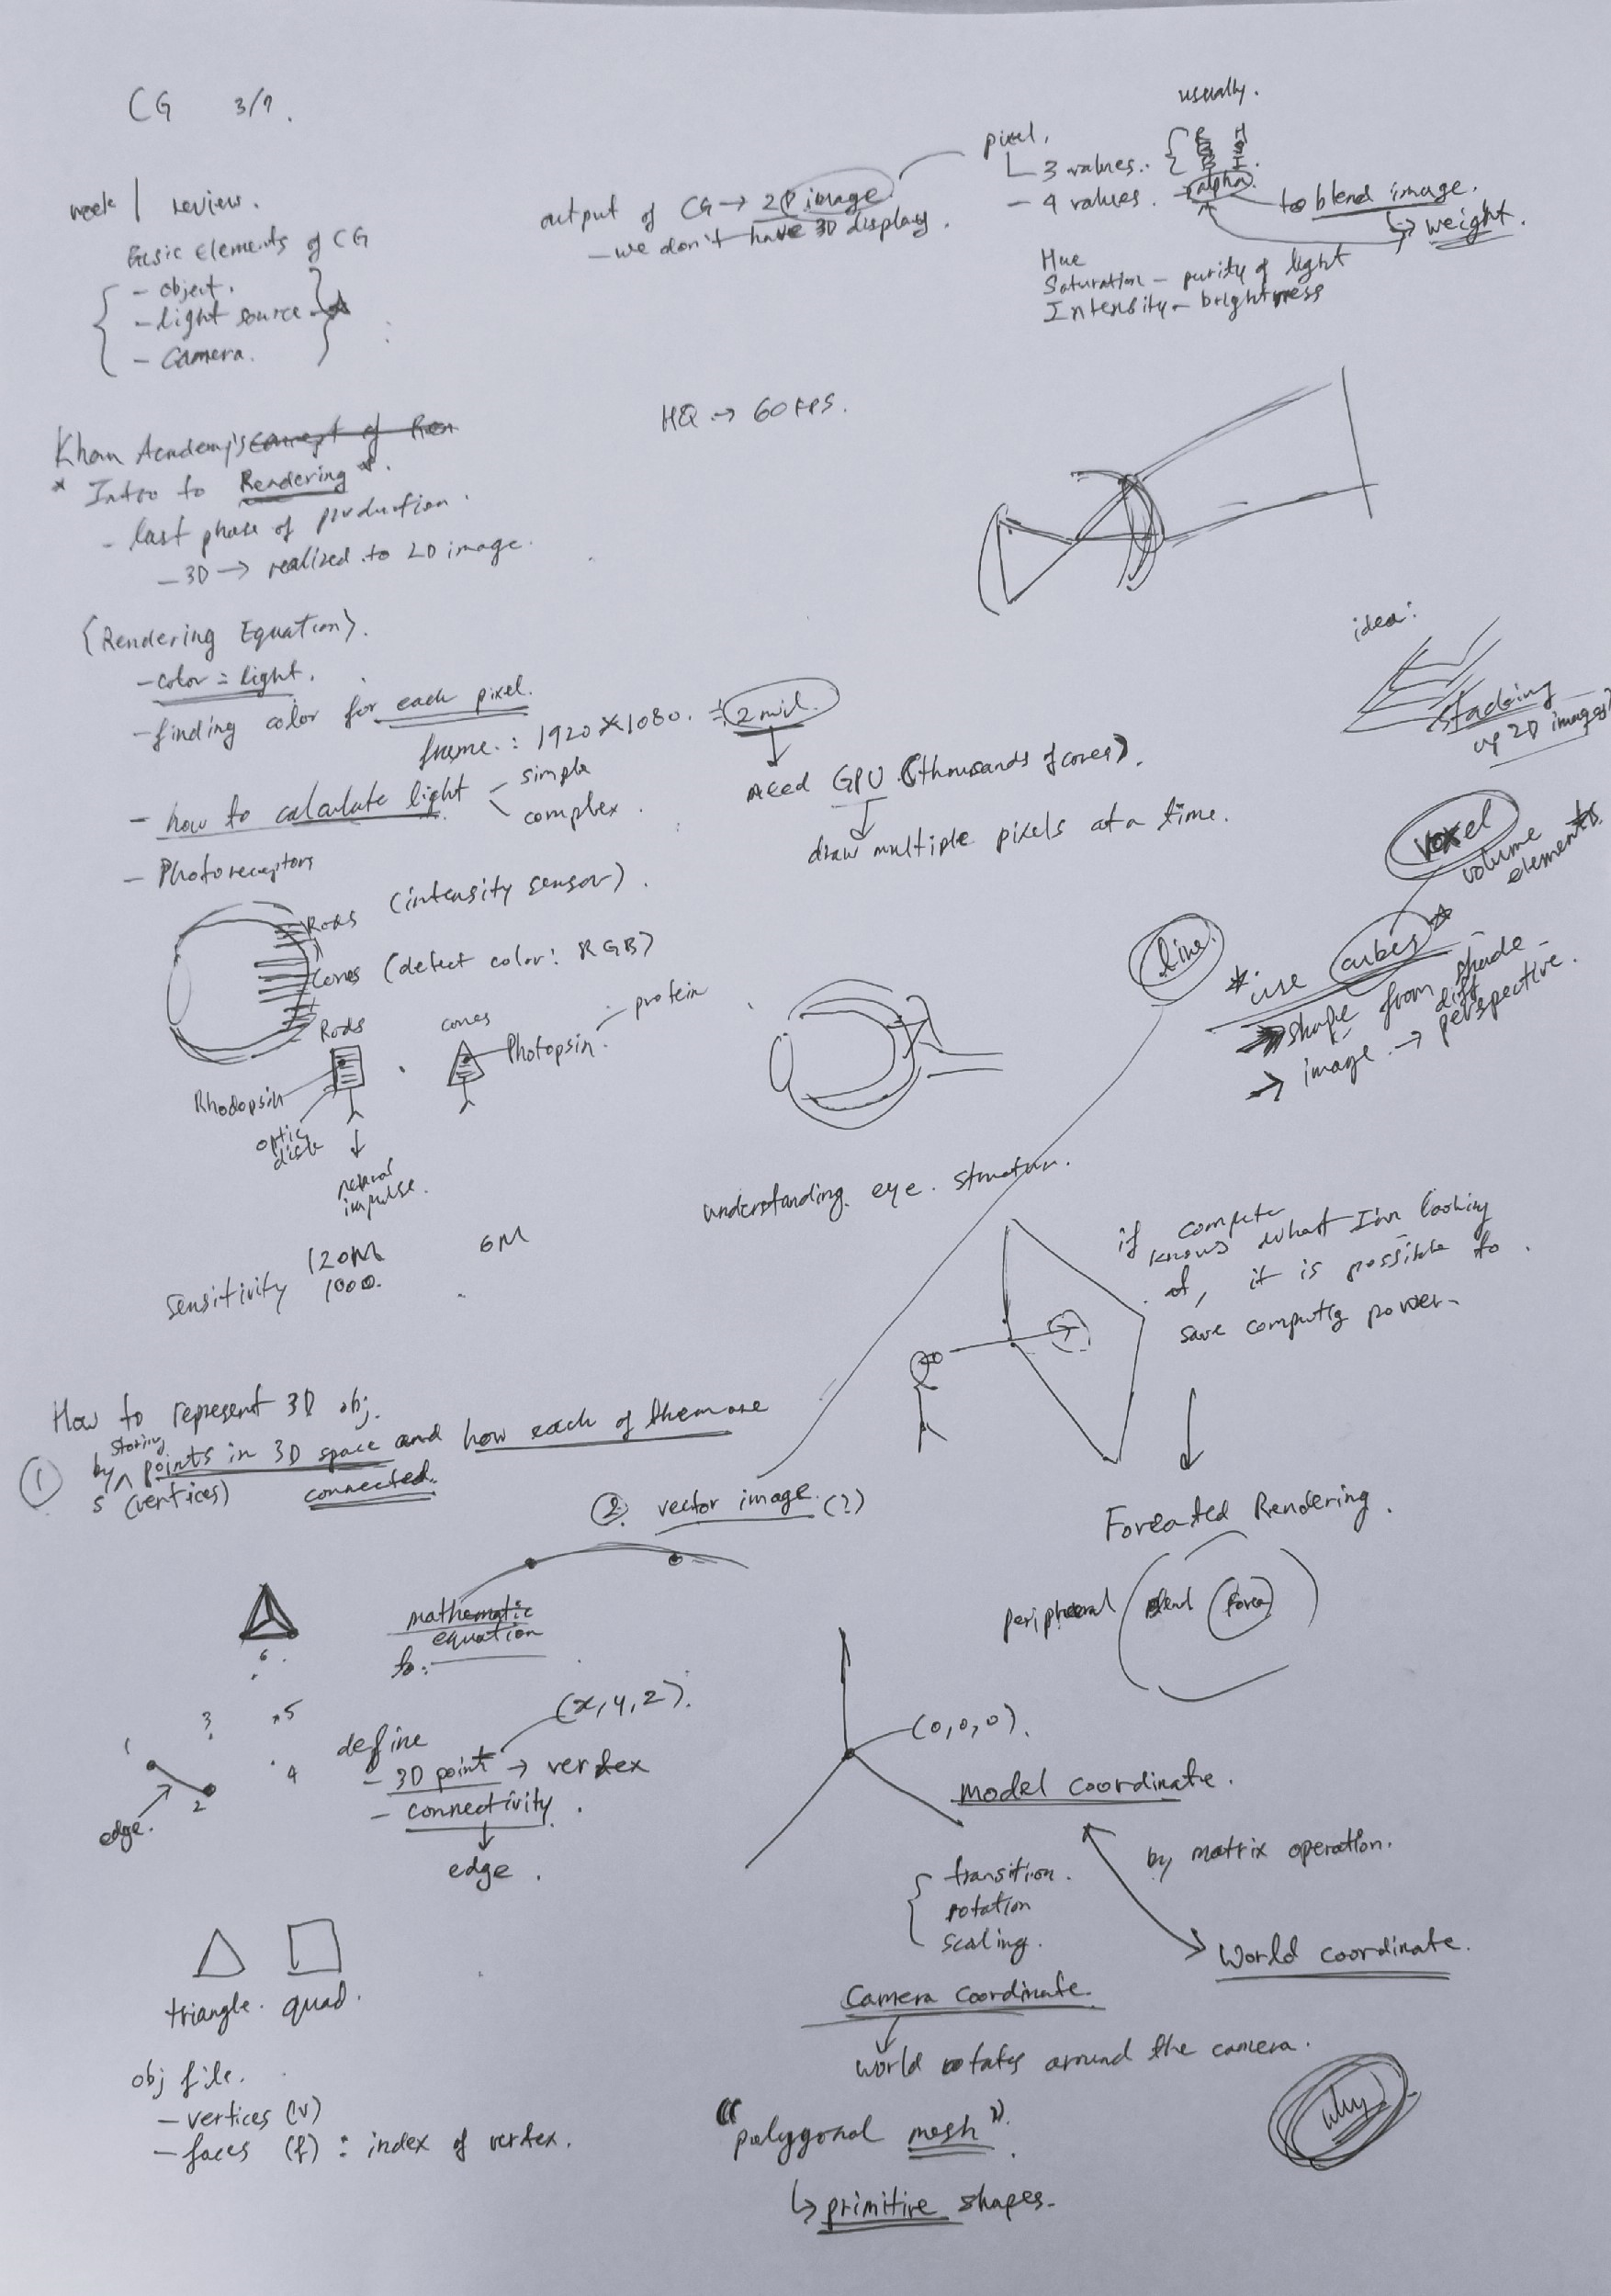 CG 3/7.
week 1 review.
Basic Elements of CG
- object.
- light source
- Camera.
output of CG → 2D image
- we don't have 3D display.
pixel.
usually.
3 values.
R H
G S
B I.
- 4 values. → alpha.
to blend image.
↳ weight.
Hue
Saturation - purity of light
Intensity - brightness
HQ → 60 FPS.
Khan Academy's concept of Ren
* Intro to Rendering *.
- last phase of production.
- 3D → realized to 2D image.
<Rendering Equation>.
- color = light.
- finding color for each pixel.
frame. : 1920 X 1080. ≒ 2 mil.
need GPU (thousands of cores).
draw multiple pixels at a time.
- how to calculate light
simple
complex.
- Photoreceptors
Rods (intensity sensor).
Cones (detect color: RGB)
Rods
cones
protein
Photopsin.
Rhodopsin
optic
disk
neural
impulse.
120M 6M
Sensitivity 1000.
understanding eye structure.
idea:
stacking
up 2D images
voxel
volume
elements
line.
* use cubes
shape from shade
diff
→ image → perspective.
if compute
knows what I'm looking
at, it is possible to.
save computig power.
Foveated Rendering.
peripheral
fovea
How to represent 3D obj.
① by storing points in 3D space and how each of them are
5 (vertices) connected.
② vector image. (?)
mathematic
equation
to:
6
3
5
1
4
2
edge.
define
- 3D point → vertex
(x, y, z).
- connectivity.
edge.
(0,0,0).
Model coordinate.
by matrix operation.
transition.
rotation
scaling.
World coordinate.
Camera Coordinate.
world rotates around the camera.
why
triangle. quad.
obj file.
- vertices (v)
- faces (f) : index of vertex.
"polygonal mesh".
↳ primitive shapes.